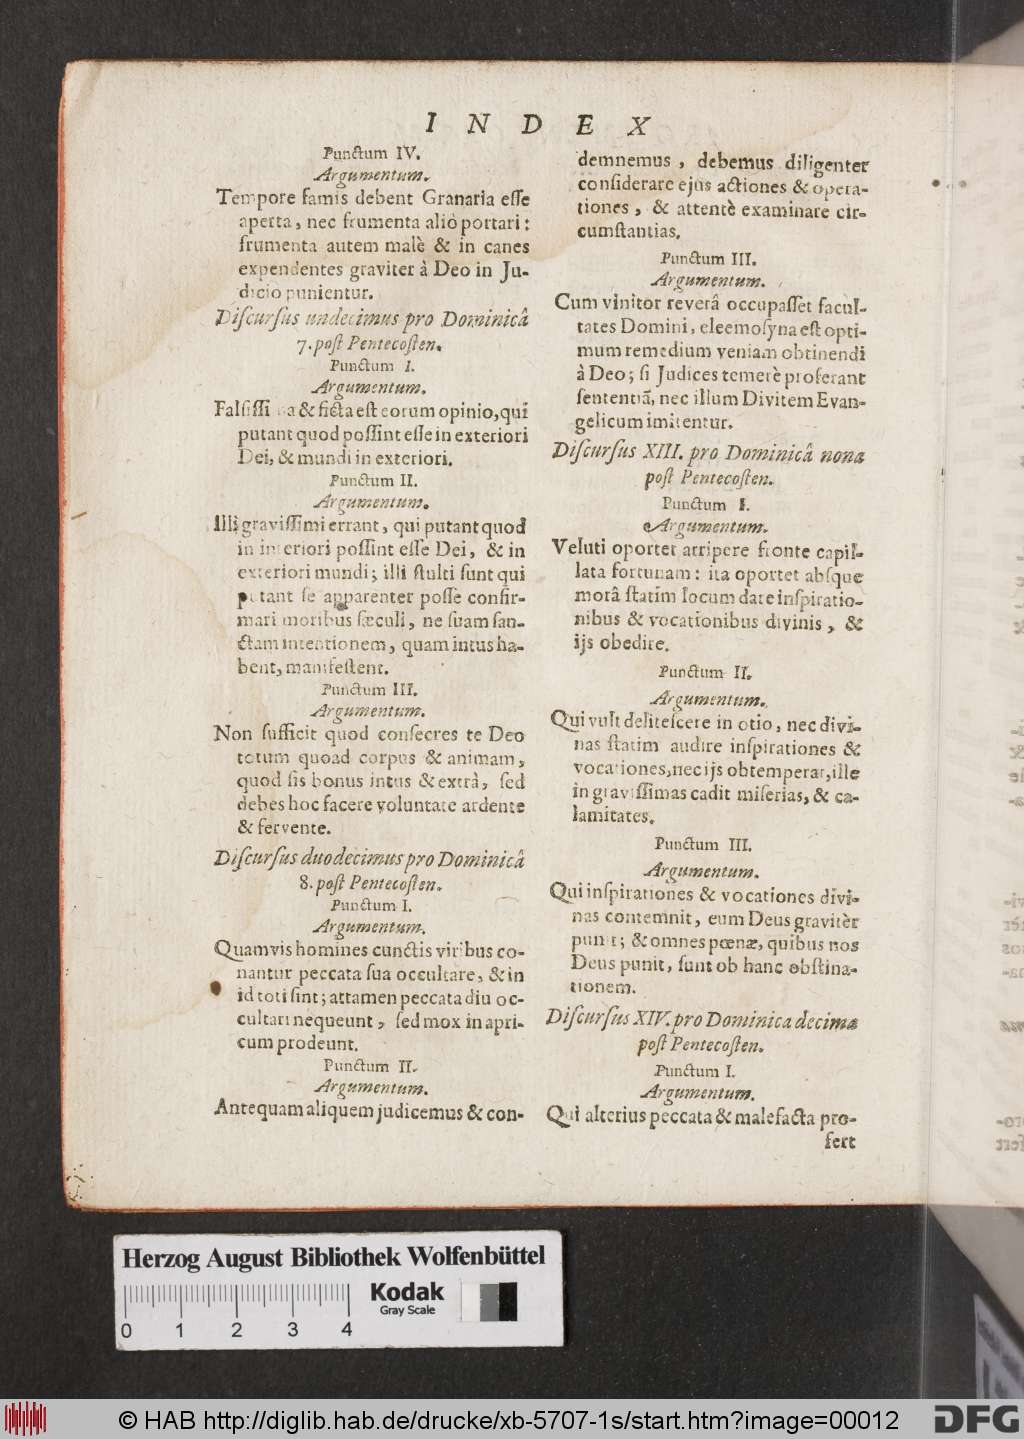 INDEX
Punctum IV.
Argumentum.
Tempore famis debent Granaria eſſe
aperta, nec frumenta aliò portari:
frumenta autem malè & in canes
expendentes graviter à Deo in Ju-
dicio punientur.
Diſcurſus undecimus pro Dominicâ
7. poſt Pentecoſten.
Punctum I.
Argumentum.
& ficta eſt eorum opinio, qui
putant quod poſſint eſſe in exteriori
Dei, & mundi in exteriori.
Punctum II.
Argumentum.
Illi graviſſimi errant, qui putant quod
in interiori poſſint eſſe Dei, & in
exteriori mundi; illi ſtulti ſunt qui
putant ſe apparenter poſſe confir-
mari moribus ſæculi, ne ſuam ſan-
ctam intentionem, quam intus ha-
bent, manifeſtent.
Punctum III.
Argumentum.
Non ſufficit quod conſecres te Deo
totum quoad corpus & animam,
quod ſis bonus intus & extrà, ſed
debes hoc facere voluntate ardente
& fervente.
Diſcurſus duodecimus pro Dominicâ
8. poſt Pentecoſten.
Punctum I.
Argumentum.
Quamvis homines cunctis viribus co-
nantur peccata ſua occultare, & in
id toti ſint; attamen peccata diu oc-
cultari nequeunt, ſed mox in apri-
cum prodeunt.
Punctum II.
Argumentum.
Antequam aliquem judicemus & con-
demnemus, debemus diligenter
conſiderare ejus actiones & opera-
tiones, & attentè examinare cir-
cumſtantias.
Punctum III.
Argumentum.
Cum vinitor reverâ occupaſſet facul-
tates Domini, eleemoſyna eſt opti-
mum remedium veniam obtinendi
à Deo; ſi Judices temerè proferant
ſententiã, nec illum Divitem Evan-
gelicum imitentur.
Diſcurſus XIII. pro Dominicâ nona
poſt Pentecoſten.
Punctum I.
Argumentum.
Veluti oportet arripere fronte capil-
lata fortunam: ita oportet abſque
morâ ſtatim locum dare inſpiratio-
nibus & vocationibus divinis, &
ijs obedire.
Punctum II.
Argumentum.
Qui vult deliteſcere in otio, nec divi-
nas ſtatim audire inſpirationes &
vocationes, nec ijs obtemperar, ille
in graviſſimas cadit miſerias, & ca-
lamitates.
Punctum III.
Argumentum.
Qui inſpirationes & vocationes divi-
nas contemnit, eum Deus gravitèr
punit; & omnes pœnæ, quibus nos
Deus punit, ſunt ob hanc obſtina-
tionem.
Diſcurſus XIV. pro Dominica decima
poſt Pentecoſten.
Punctum I.
Argumentum.
Qui alterius peccata & malefacta pro-
fert
Herzog August Bibliothek Wolfenbüttel
Kodak
Gray Scale
0 1 2 3 4
© HAB http://diglib.hab.de/drucke/xb-5707-1s/start.htm?image=00012
DFG